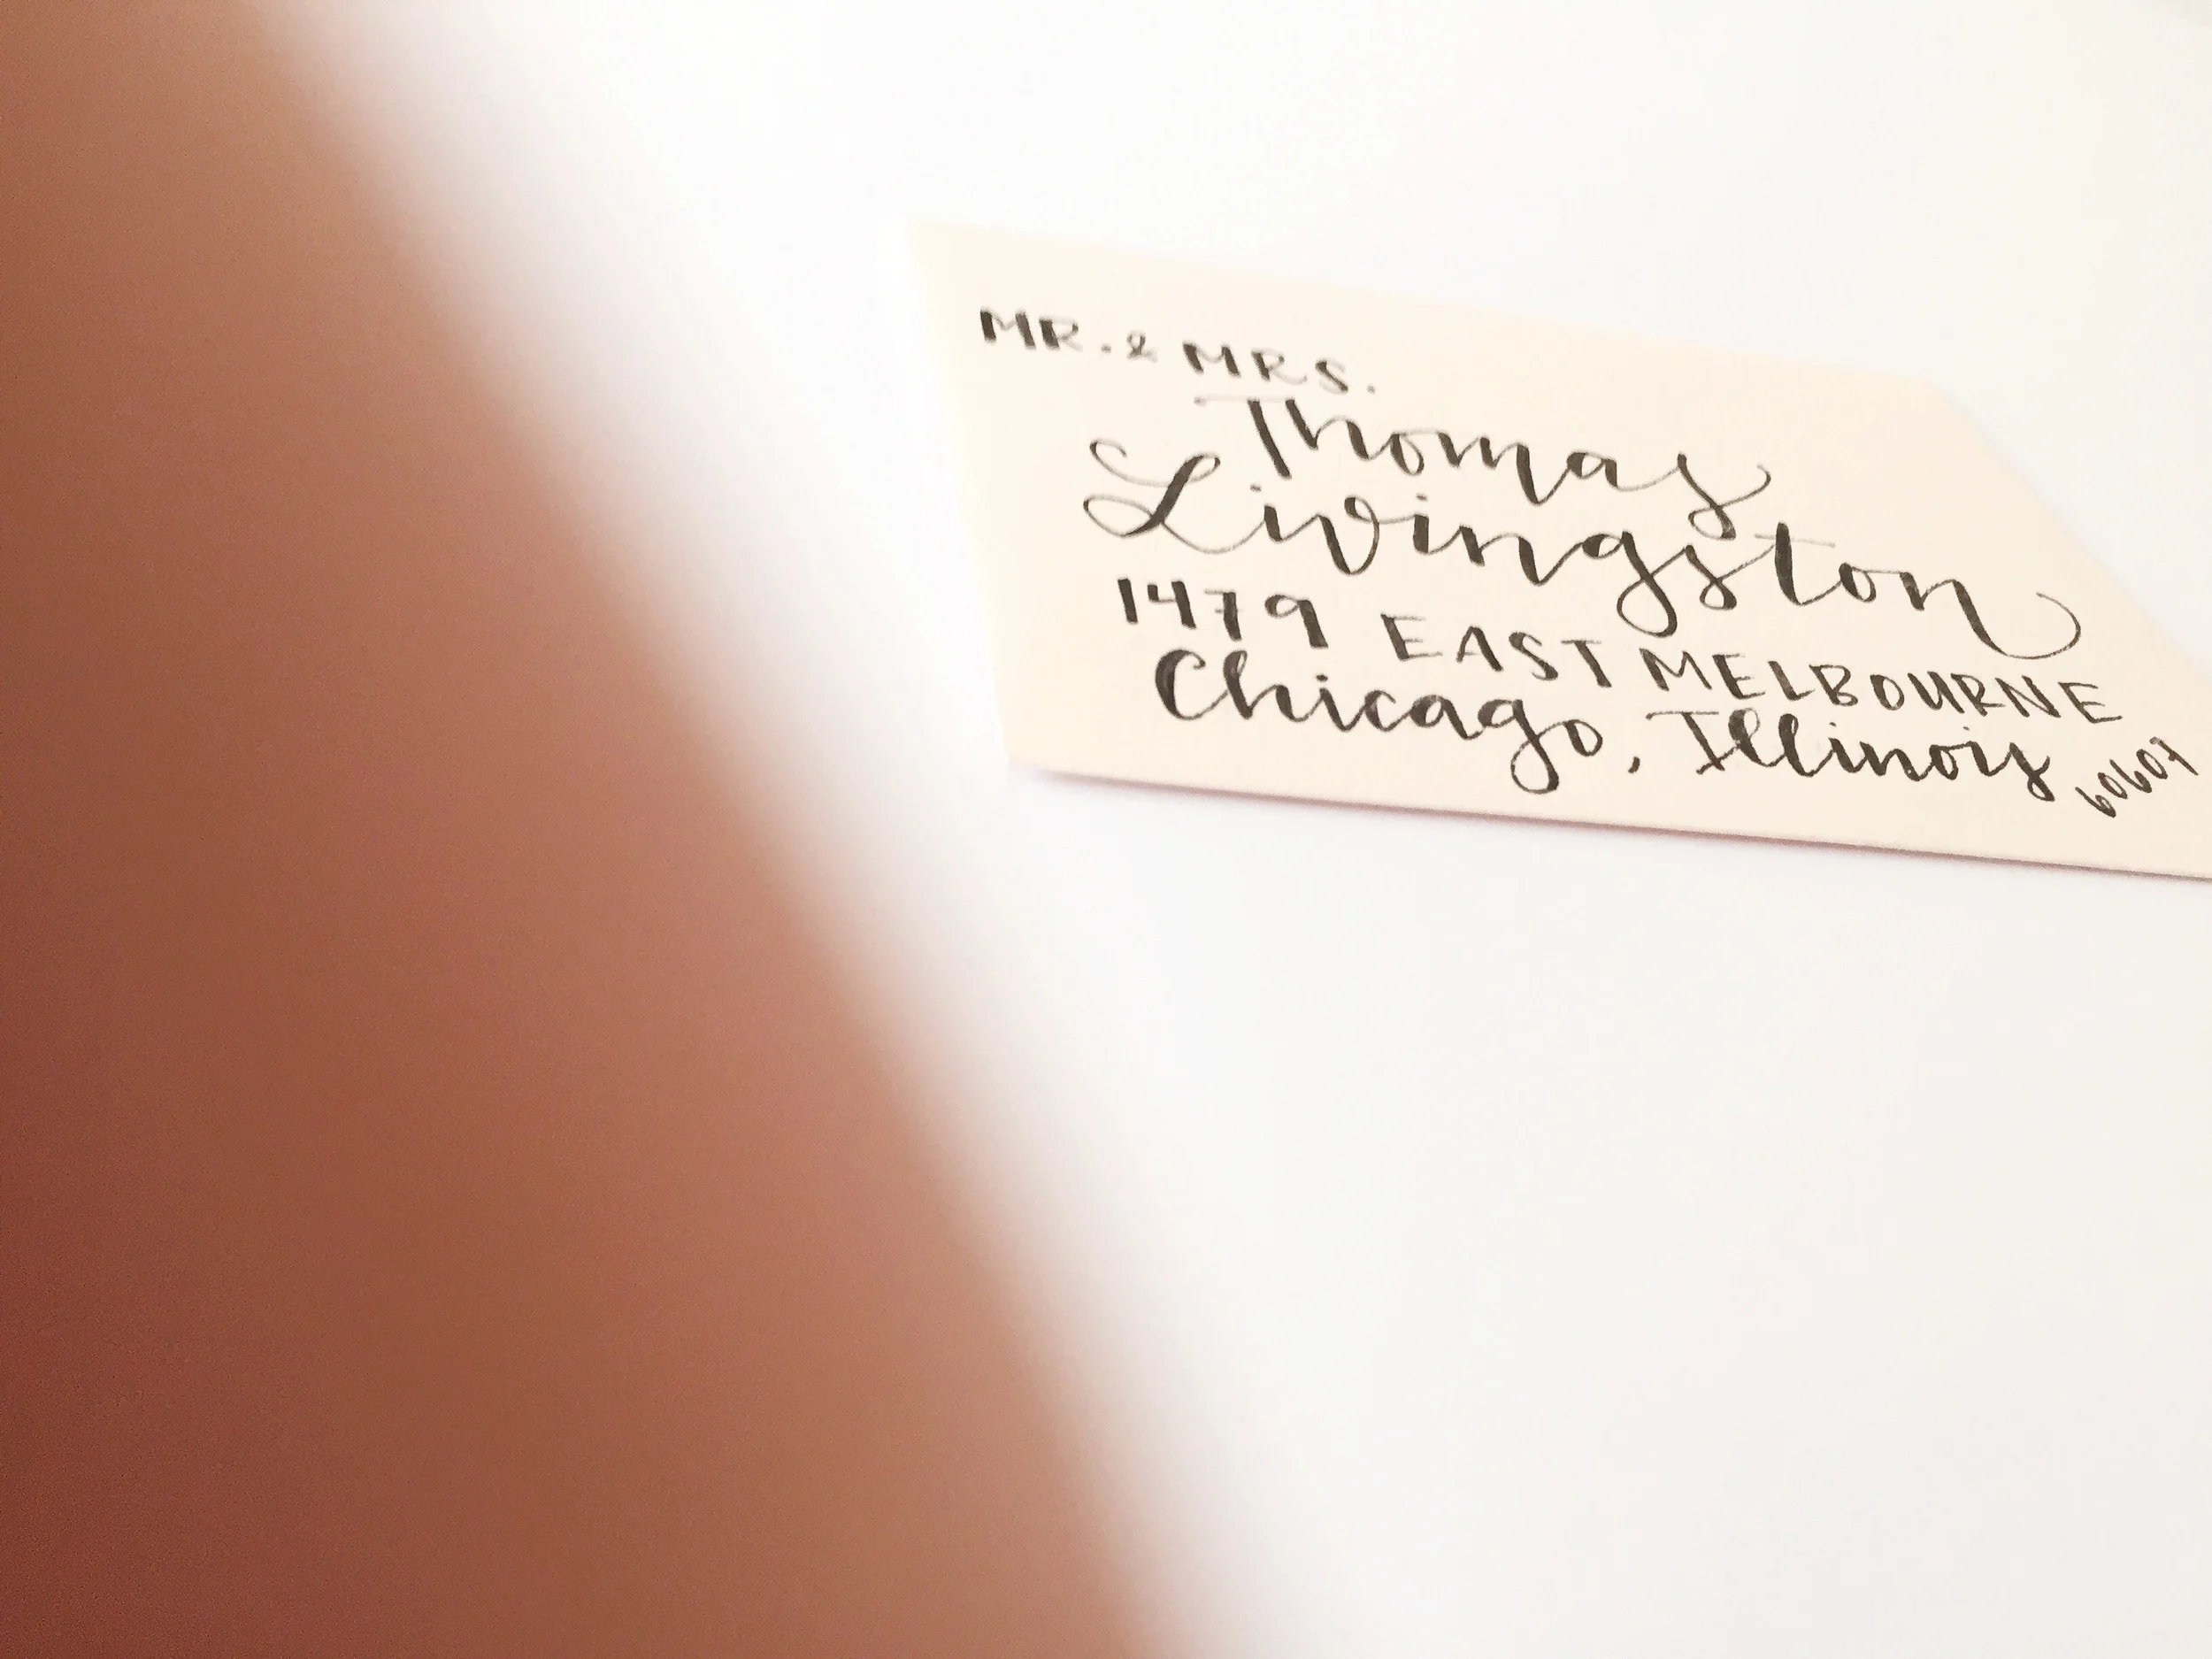 MR. & MRS.
Thomas
Livingston
1479 EAST MELBOURNE
Chicago, Illinois 60607